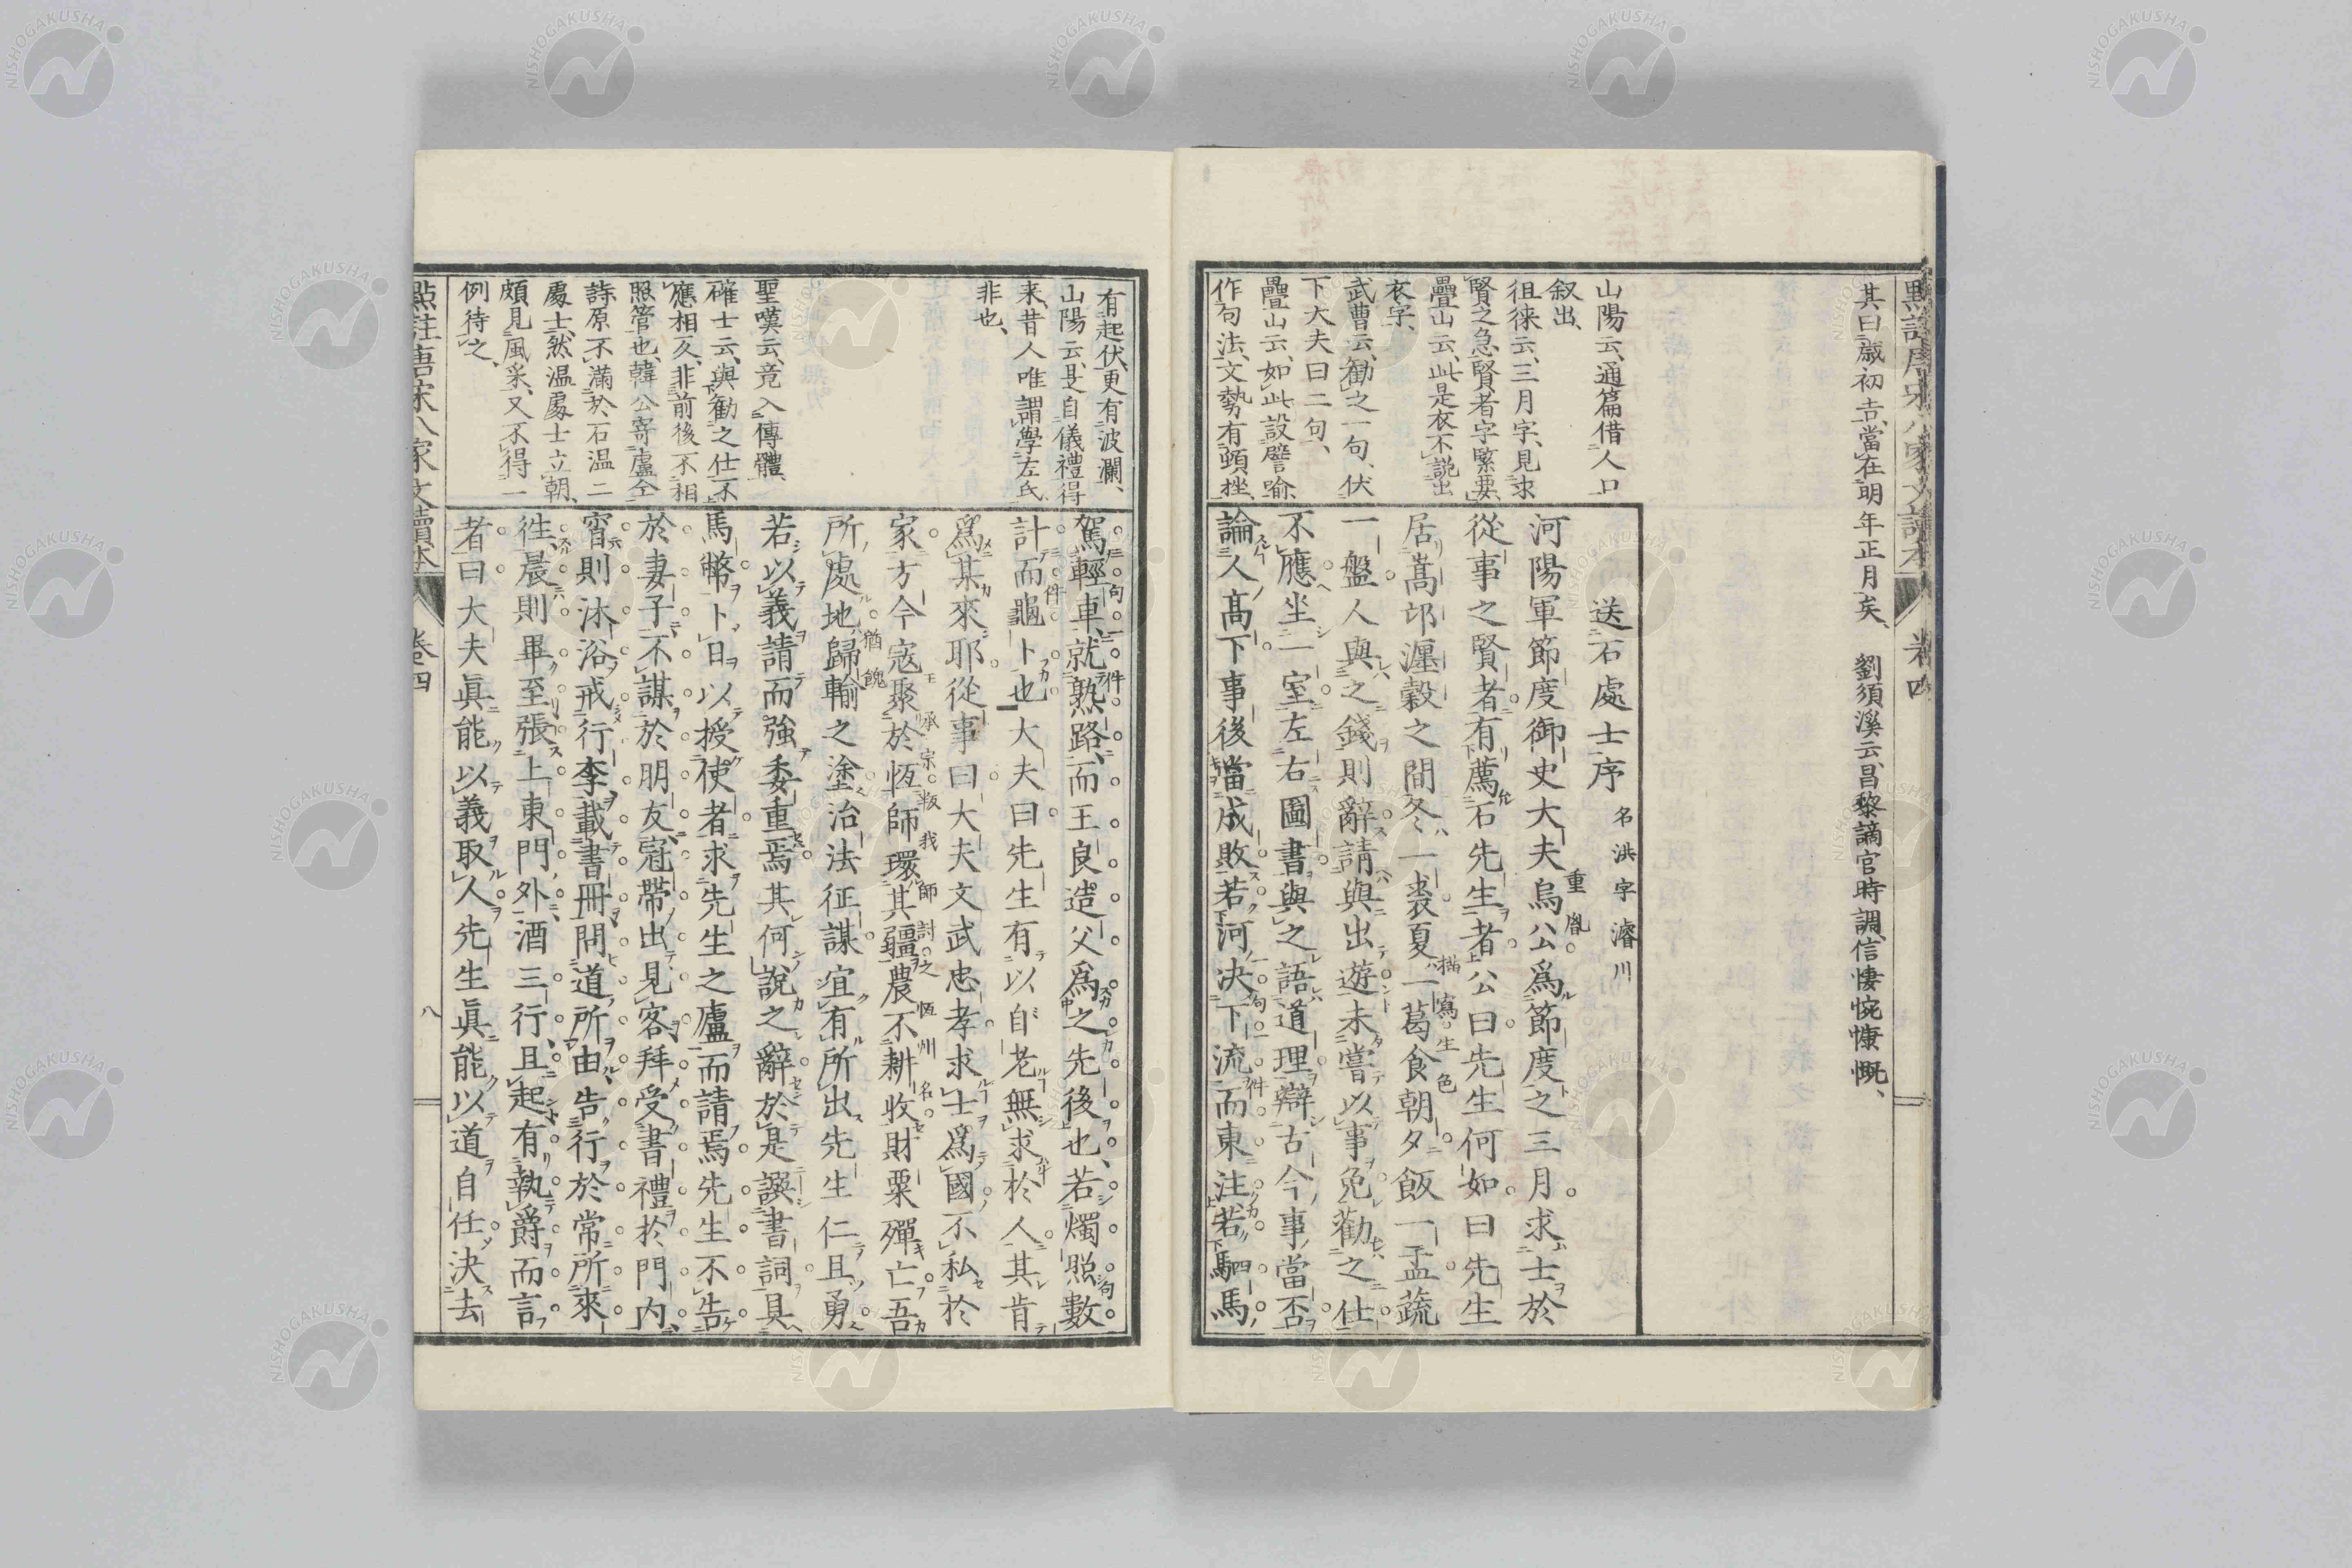 其曰歳初吉、當在明年正月矣、 劉須溪云、昌黎謫官時調信悽惋慷慨、
山陽云、通篇借人口
叙出、
徂徠云、三月字、見求
賢之急、賢者字緊要、
疊山云、此是衣不説出
衣字、
武曹云、勸之一句、伏
下大夫曰二句、
疊山云、如此設譬喩
作句法、文勢有頓挫、
送石處士序 名洪字濬川
河陽軍節度御史大夫烏公爲節度之三月求士於
重胤
從事之賢者有薦石先生者公曰先生何如曰先生
居嵩邙瀍穀之間冬一裘夏一葛食朝夕飯一盂蔬
描寫生色
一盤人與之錢則辭請與出遊未嘗以事免勸之仕
不應坐一室左右圖書與之語道理辯古今事當否
論人高下事後當成敗若河決下流而東注若駟馬
有起伏、更有波瀾、
山陽云、是自儀禮得
来、昔人唯謂學左氏、
非也、
聖嘆云、竟入傳體、
確士云、與勸之仕不
應相久、非前後不相
照管也、韓公寄盧仝
詩原不滿於石温二
處士、然温處士立朝、
頗見風采、又不得一
例待之、
駕輕車、就熟路、而王良造父爲之先後也、若燭照數
計而龜卜也大夫曰先生有以自老無求於人其肯
爲某來耶從事曰大夫文武忠孝求士爲國不私於
家方今寇聚於恆師環其疆農不耕收財粟殫亡吾
王承宗叛我師討之恆州名
所處地歸輸之塗治法征謀宜有所出先生仁且勇
猶餽
若以義請而強委重焉其何説之辭於是譔書詞具
馬幣卜日以授使者求先生之廬而請焉先生不告
於妻子不謀於朋友冠帶出見客拜受書禮於門内、
宵則沐浴戒行李載書冊問道所由告行於常所來
徃、晨則畢至張上東門外酒三行、且起有執爵而言
者曰大夫眞能以義取人先生眞能以道自任決去
點註唐宋八家文讀本 卷四 八